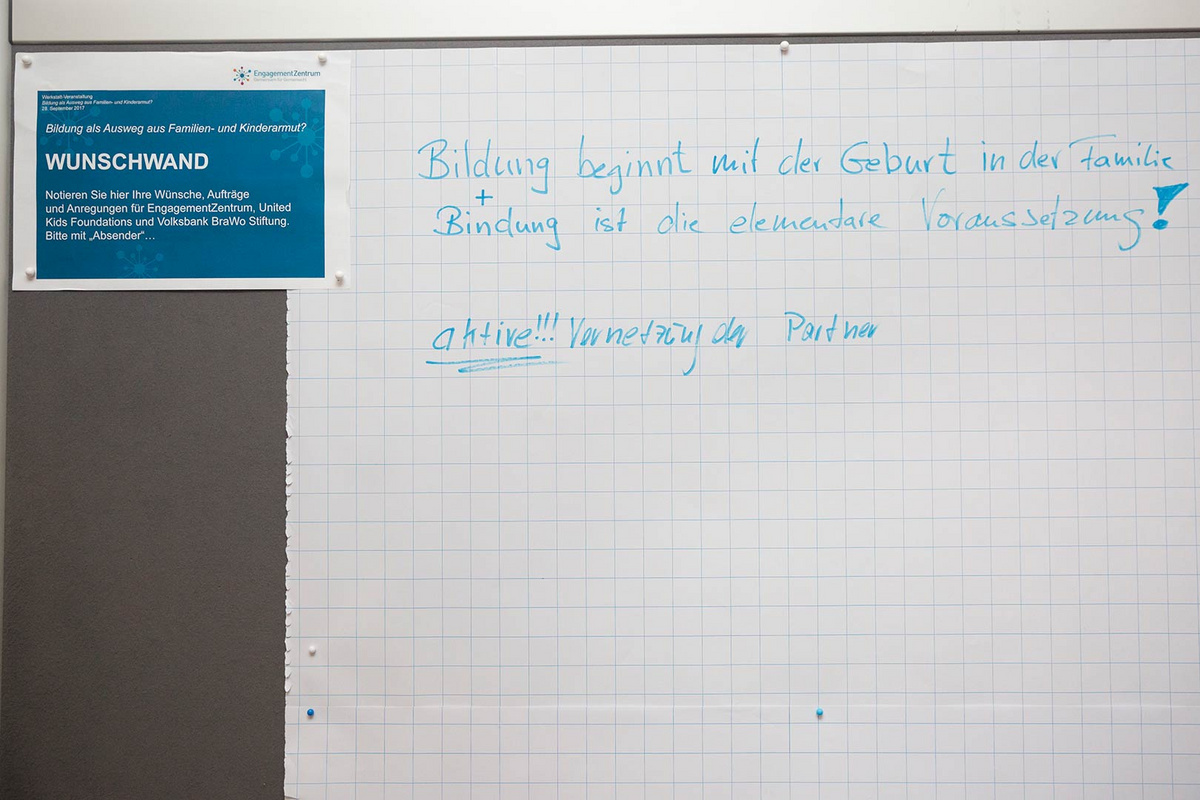 EngagementZentrum
Werkstatt-Veranstaltung
Bildung als Ausweg aus Familien- und Kinderarmut?
28. September 2017
Bildung als Ausweg aus Familien- und Kinderarmut?
WUNSCHWAND
Notieren Sie hier Ihre Wünsche, Aufträge
und Anregungen für EngagementZentrum, United
Kids Foundations und Volksbank BraWo Stiftung.
Bitte mit „Absender“...
Bildung beginnt mit der Geburt in der Familie
+
Bindung ist die elementare Voraussetzung!
aktive!!! Vernetzung der Partner